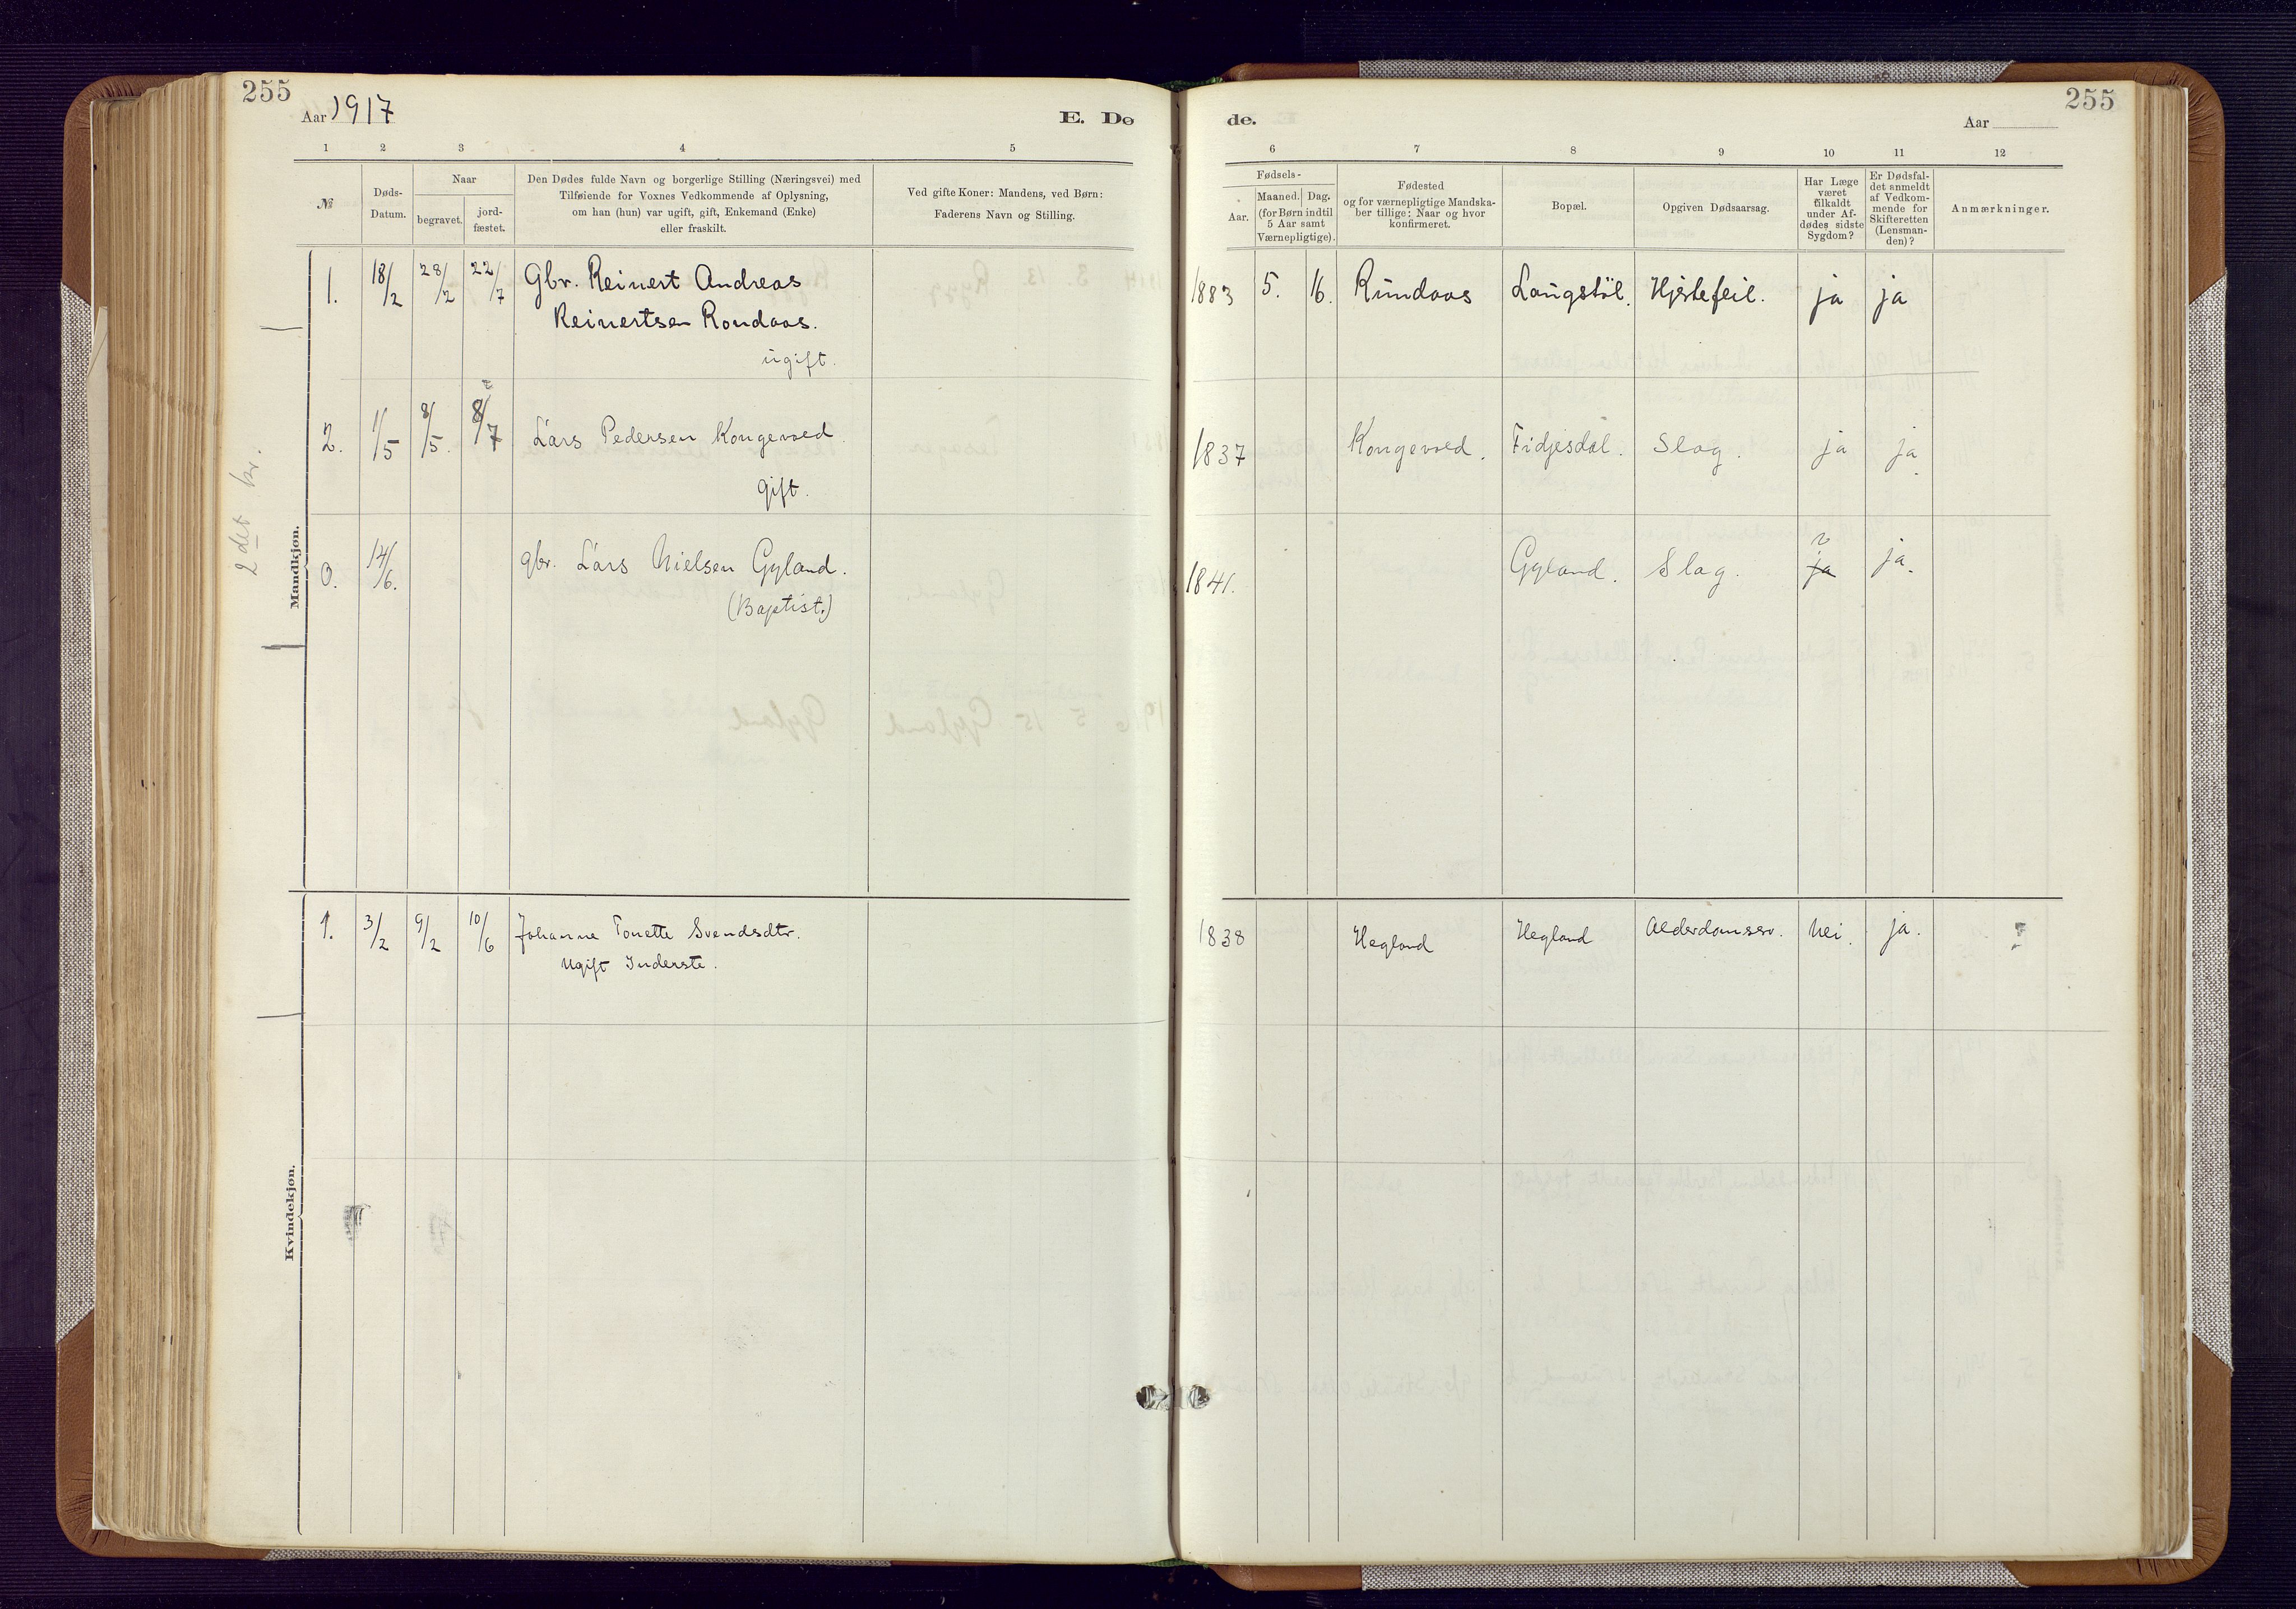 255
Aar 1917
E. Dø
1 2 3 4 5
№
Døds-
Datum.
Naar
begravet.
jord-
fæstet.
Den Dødes fulde Navn og borgerlige Stilling (Næringsvei) med
Tilføiende for Voxnes Vedkommende af Oplysning,
om han (hun) var ugift, gift, Enkemand (Enke)
eller fraskilt.
Ved gifte Koner: Mandens, ved Børn:
Faderens Navn og Stilling.
Mandkjøn.
2det kr.
1. 18/2 28/2 22/7 Gbr. Reinert Andreas
Reinertsen Rondaas.
ugift.
2. 1/5 8/5. 8/7 Lars Pedersen Kongevold.
gift.
0. 14/6. gbr. Lars Nielsen Gyland.
(Baptist.)
Kvindekjøn.
1. 3/2 9/2 10/6 Johanne Tonette Svendsdtr.
Ugift Inderste.
de.
Aar
255
6 7 8 9 10 11 12
Fødsels-
Aar.
Maaned. Dag.
(for Børn indtil
5 Aar samt
Værnepligtige).
Fødested
og for værnepligtige Mandska-
ber tillige: Naar og hvor
konfirmeret.
Bopæl.
Opgiven Dødsaarsag.
Har Læge
været
tilkaldt
under Af-
dødes sidste
Sygdom?
Er Dødsfal-
det anmeldt
af Vedkom-
mende for
Skifteretten
(Lensman-
den)?
Anmærkninger.
1883 5. 16. Rundaas Langstøl. Hjertefeil. ja ja
1837 Kongevold. Fidjesdal. Slag. ja ja.
1841. Gyland. Slag. ? ja ja.
1838 Hegland Hegland Alderdomssv. Nei. ja.